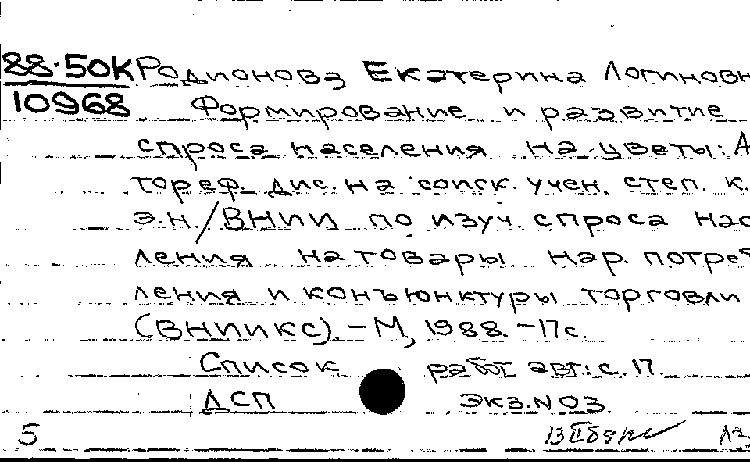 88-50К Родионова Екатерина Логиновн
10968 Формирование и развитие
спроса населения на цветы: А
тореф. дис. на соиск. учен. степ. к.
э.н. / ВНИИ по изуч. спроса нас
ления на товары нар. потреб
ления и конъюнктуры торговли
(ВНИИКС). – М, 1988. – 17 с.
Список работ авт.: с. 17.
ДСП Экз. N 03
5